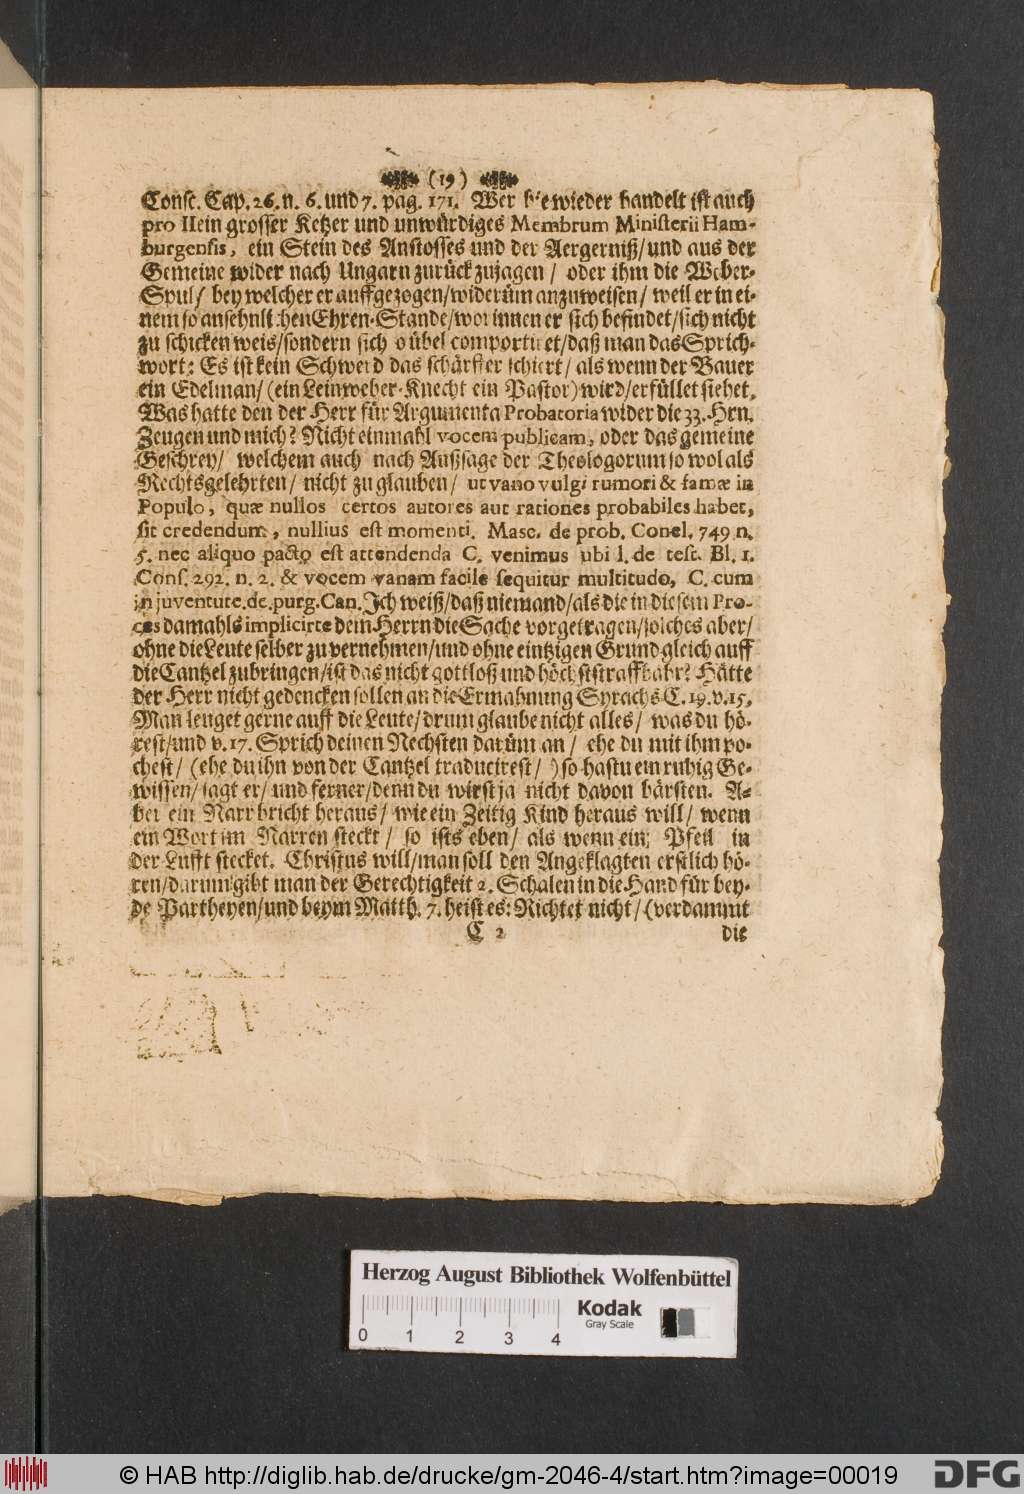 (19)
Consc. Cap. 26. n. 6. und 7. pag. 171. Wer hiewieder handelt ist auch
pro II ein grosser Ketzer und unwürdiges Membrum Ministerii Ham-
burgensis, ein Stein des Anstosses und der Aergerniß/ und aus der
Gemeine wider nach Ungarn zurück zujagen/ oder ihm die Weber-
Spul/ bey welcher er auffgezogen/ widerüm anzuweisen/ weil er in ei-
nem so ansehnlichen Ehren-Stande/ worinnen er sich befindet/ sich nicht
zu schicken weis/ sondern sich so übel comportiret/ daß man das Sprich-
wort: Es ist kein Schwerd das schärffer schiert/ als wenn der Bauer
ein Edelman/ (ein Leinweber-Knecht ein Pastor) wird/ erfüllet siehet.
Was hatte den der Herr für Argumenta Probatoria wider die 33. Hrn.
Zeugen und mich? Nicht einmahl vocem publicam, oder das gemeine
Geschrey/ welchem auch nach Außsage der Theologorum so wol als
Rechtsgelehrten/ nicht zu glauben/ ut vano vulgi rumori & famæ in
Populo, quæ nullos certos autores aut rationes probabiles habet,
sit credendum, nullius est momenti. Masc. de prob. Concl. 749 n.
5. nec aliquo pacto est attendenda C. venimus ubi l. de test. Bl. 1.
Cons. 292. n. 2. & vocem vanam facile sequitur multitudo, C. cum
in juventute. de. purg. Can. Ich weiß/ daß niemand/ als die in diesem Pro-
ces damahls implicirte dem Herrn die Sache vorgetragen/ solches aber/
ohne die Leute selber zu vernehmen/ und ohne eintzigen Grund gleich auff
die Cantzel zubringen/ ist das nicht gottloß und höchststraffbahr? Hätte
der Herr nicht gedencken sollen an die Ermahnung Syrachs C. 19. v. 15.
Man leuget gerne auff die Leute/ drum glaube nicht alles/ was du hö-
rest/ und v. 17. Sprich deinen Nechsten darüm an/ ehe du mit ihm po-
chest/ (ehe du ihn von der Cantzel traducirest/) so hastu ein ruhig Ge-
wissen/ sagt er/ und ferner/ denn du wirst ja nicht davon bärsten. A-
ber ein Narr bricht heraus/ wie ein Zeitig Kind heraus will/ wenn
ein Wort im Narren steckt/ so ists eben/ als wenn ein Pfeil in
der Hufft stecket. Christus will/ man soll den Angeklagten erstlich hö-
ren/ darum gibt man der Gerechtigkeit 2. Schalen in die Hand für bey-
de Partheyen/ und beym Matth. 7. heist es: Richtet nicht/ (verdammt
C 2 die
Herzog August Bibliothek Wolfenbüttel
Kodak
Gray Scale
0 1 2 3 4
© HAB http://diglib.hab.de/drucke/gm-2046-4/start.htm?image=00019
DFG